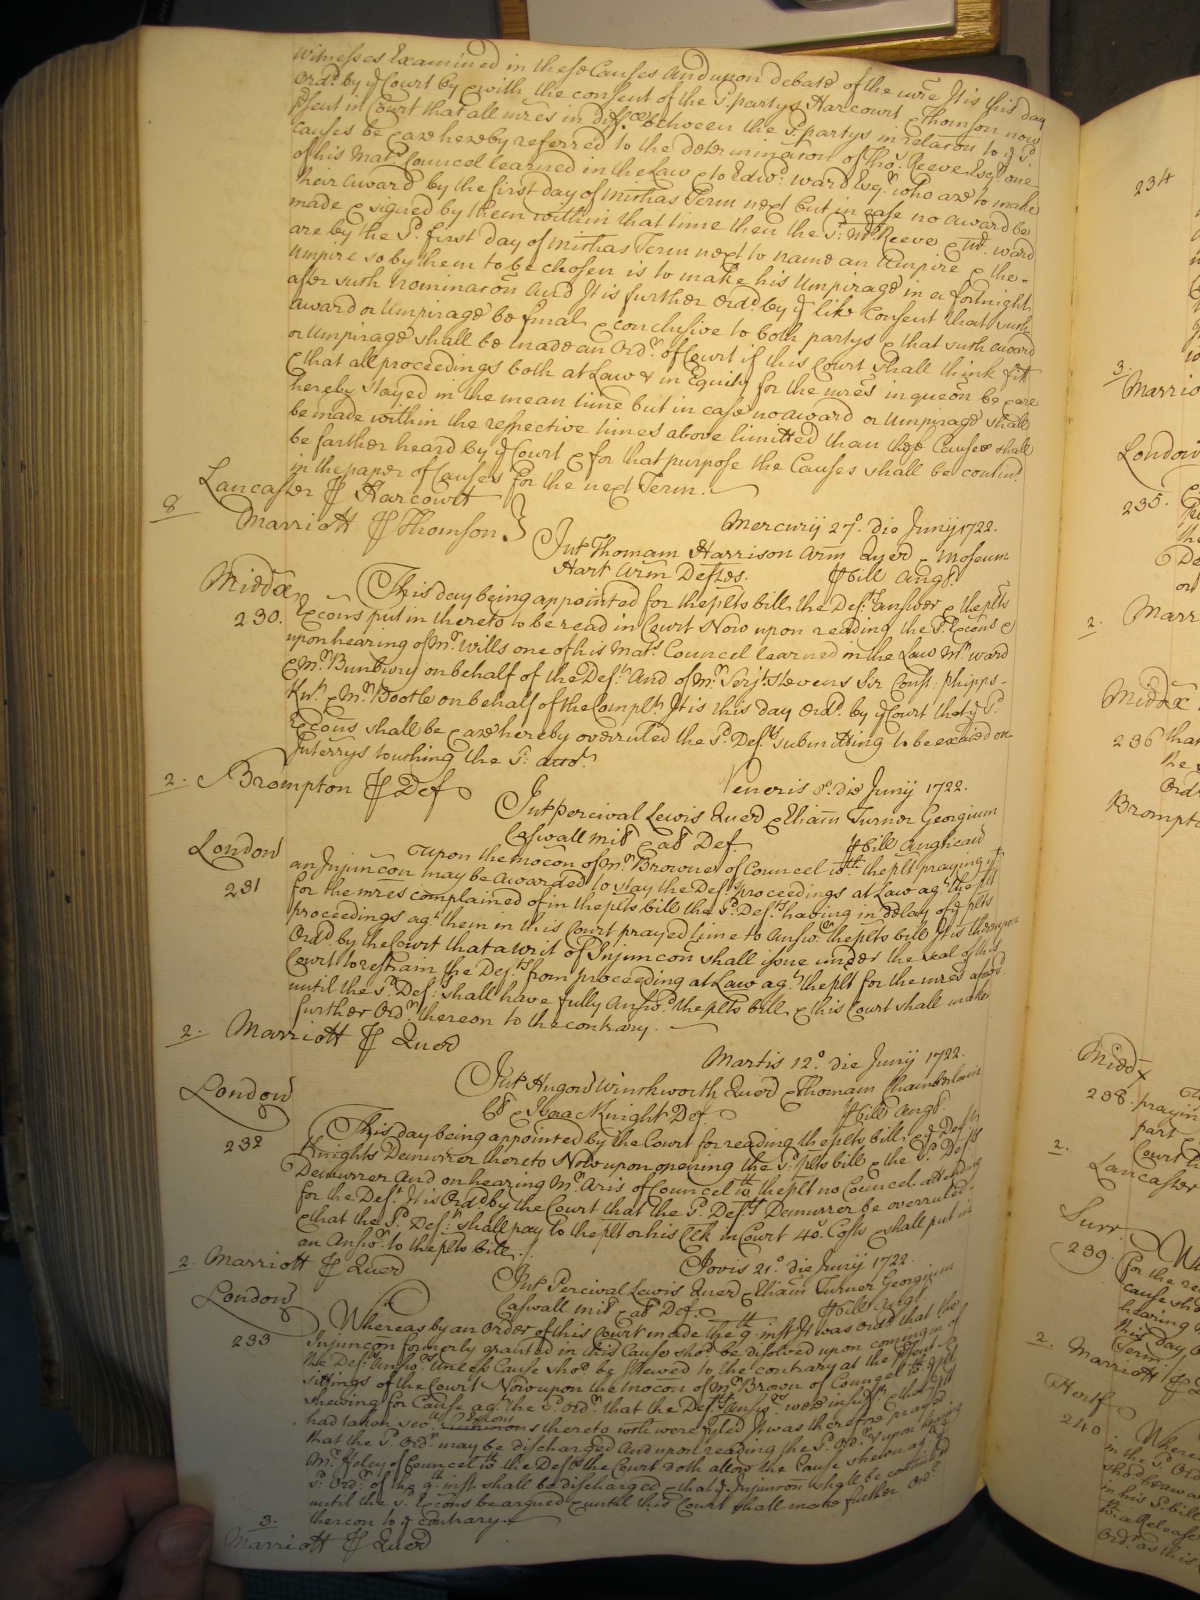 witnesses Examined in these Causes And upon debate of the mre It is this day
Ord.d by y.e Court by & with the consent of the S.d partys Harcourt & Thomson now
p.sent in Court that all mres in diff.ce between the S.d partys in relacon to y.e S.d
Causes be & are hereby referred to the determinacon of Tho.s Reeve Esq.r one
of his Mat.s Councel learned in the Law & to Edw.d Ward Esq.r who are to make
their award by the first day of Michas Term next but in case no award be
made & signed by them within that time then the S.d M.r Reeve & M.r Ward
are by the S.d first day of Michas Term next to name an Umpire & the
Umpire so by them to be chosen is to make his Umpirage in a fortnight
after such Nominacon And It is further Ord.d by y.e like Consent that such
award or Umpirage be final & conclusive to both partys & that such award
or Umpirage shall be made an Ord.r of Court if this Court shall think fitt
& that all proceedings both at Law & in Equity for the mres in queon be & are
hereby stayed in the mean time but in case no award or Umpirage shall
be made within the respective times above limitted than these Causes shall
be farther heard by y.e Court & for that purpose the Causes shall be contin.d
in the paper of Causes for the next Term.
Lancaster p Harcourt
8 Marriott p Thomson
Mercurij 27.o die Junij 1722.
Int Thomam Harrison Arm Quer & Moseum
Hart Arm Deftes. p bill Angl.
Middx This day being appointed for the plts bill the Def.ts answer & the plts
230. Excons put in thereto to be read in Court Now upon reading the S.d Excons &
upon hearing of M.r Wills one of his Mat.s Council learned in the Law M.r Ward
& M.r Bunbury on behalf of the Def.t And of M.r Serj.t Stevens Sr Const: Phipps
Kn.t & M.r Bootle on behalf of the Compl.t It is this day Ord.d by y.e Court that y.e S.d
Excons shall be & are hereby overruled the S.d Def.t submitting to be exaied on
Interrys touching the S.d
2. Brompton p Def
Veneris 8.o die Junij 1722.
Int Percival Lewis Quer & Eliam Turner Georgium
Caswall mil & al Def. p bill Anglican
London Upon the mocon of M.r Browne of Councel wth the plt praying y.t
231 an Injuncon may be Awarded to stay the Def.ts proceedings at Law ag.t the plt
for the mres complained of in the plts bill the S.d Def.ts having in delay of y.e plts
proceedings ag.t them in this Court prayed time to Answ.r the plts bill It is thereupon
Ord.d by the Court that a writ of Injuncon shall issue under the seal of this
Court to restrain the Def.ts from proceeding at Law ag.t the plt for the mres afores.d
until the S.d Def.ts shall have fully Answ.d the plts bill & this Court shall make
further Ord.r thereon to the contrary.
2. Marriott p Quer
Martis 12.o die Junij 1722.
Int Hugon Winchworth Quer & Thomam Chamberlain
& Isaac Knight Def p bill Angl
London This day being appointed by the Court for reading the plts bill & y.e Def.t
232 Knights Demurrer thereto Now upon opening the S.d plts bill & the S.d Def.ts
Demurrer And on hearing M.r Aris of Councel wth the plt no Councel attending
for the Def.t It is Ord.d by the Court that the S.d Def.ts Demurrer be overruled
& that the S.d Def.t shall pay to the plt or his Clk in Court 40.s Costs & shall put in
an Answ.r to the plts bill.
2. Marriott p Quer
Jovis 21.o die Junij 1722.
Int Percival Lewis Quer & Eliam Turner Georgium
Caswall mil & al Def. p bill Angl.
London Whereas by an Order of this Court made the 9th inst It was Ord.d that the
233 Injuncon formerly granted in this Cause sho.d be disolved upon coming in of
the Def.ts Answ.r Unless Cause sho.d be shewed to the contrary at the p.sent
sittings of the Court Now upon the mocon of M.r Brown of Councel wth y.e plt
shewing for Cause ag.t the S.d Ord.r that the Def.ts Answ.rs were insuff.t & that y.e plt
had taken sev.l Excons thereto wch were fyled It was therefore prayed
that the S.d Ord.r may be discharged And upon reading the S.d Ord.r & upon hearing
M.r Foley of Councel wth the Def.ts the Court doth allow the Cause shewn ag.t y.e
S.d Ord.r of the 9th inst shall be discharged & that y.e Injuncon shall be continued
until the S.d Excons be argued & until this Court shall make further Ord.r
thereon to y.e contrary.
3. Marriott p Quer
234
3.
Marrio
London
235.
2. Marr
Middx
236 that
Brompto
Middx
238. prayin
part
Court
2.
Lancaster
Surr. Wh
239. for the re
cause sho
hearing
this day
Term
2. Marriott
Hertf
240 Where
in the S.d Ord
in his S.d bill
to a Release
Ord.r as this